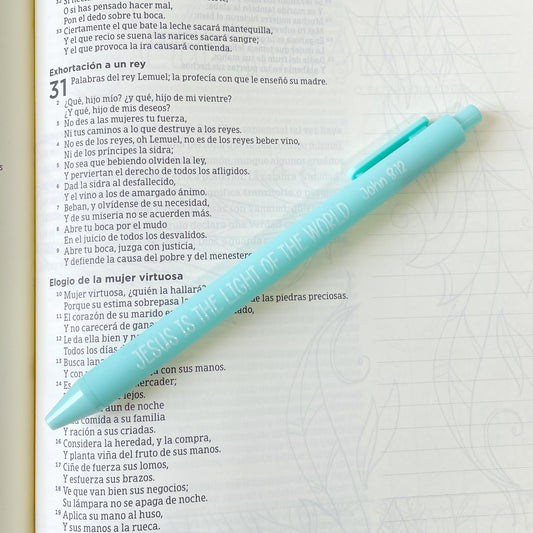 O si has pensado hacer mal,
Pon el dedo sobre tu boca.
33 Ciertamente el que bate la leche sacará mantequilla,
Y el que recio se suena las narices sacará sangre;
Y el que provoca la ira causará contienda.
Exhortación a un rey
31 Palabras del rey Lemuel; la profecía con que le enseñó su madre.
2 ¿Qué, hijo mío? ¿y qué, hijo de mi vientre?
¿Y qué, hijo de mis deseos?
3 No des a las mujeres tu fuerza,
Ni tus caminos a lo que destruye a los reyes.
4 No es de los reyes, oh Lemuel, no es de los reyes beber vino,
Ni de los príncipes la sidra;
5 No sea que bebiendo olviden la ley,
Y perviertan el derecho de todos los afligidos.
6 Dad la sidra al desfallecido,
Y el vino a los de amargado ánimo.
7 Beban, y olvídense de su necesidad,
Y de su miseria no se acuerden más.
8 Abre tu boca por el mudo
En el juicio de todos los desvalidos.
9 Abre tu boca, juzga con justicia,
Y defiende la causa del pobre y del menester
Elogio de la mujer virtuosa
10 Mujer virtuosa, ¿quién la hallará?
Porque su estima sobrepasa de las piedras preciosas.
11 El corazón de su marido
Y no carecerá de
12 Le da ella bien y
Todos los días
13 Busca
Y con con sus manos.
14
lejos.
aun de noche
comida a su familia
Y ración a sus criadas.
16 Considera la heredad, y la compra,
Y planta viña del fruto de sus manos.
17 Ciñe de fuerza sus lomos,
Y esfuerza sus brazos.
18 Ve que van bien sus negocios;
Su lámpara no se apaga de noche.
19 Aplica su mano al huso,
Y sus manos a la rueca.
JESUS IS THE LIGHT OF THE WORLD
John 8:12